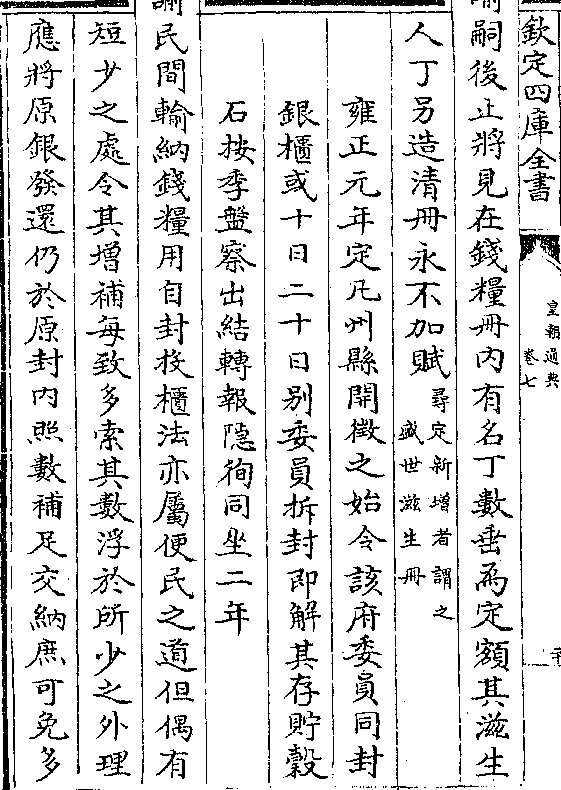 欽定四庫全書
皇朝通典
卷七
諭嗣後止將見在錢糧冊內有名丁數垂為定額其滋生
人丁另造清冊永不加賦尋定新增者謂之
盛世滋生冊
雍正元年定凡州縣開徵之始令該府委員同封
銀櫃或十日二十日別委員拆封即解其存貯穀
石按季盤察出結轉報隱徇同坐二年
諭民間輸納錢糧用自封投櫃法亦屬便民之道但偶有
短少之處令其增補每致多索其數浮於所少之外理
應將原銀發還仍於原封內照數補足交納庶可免多